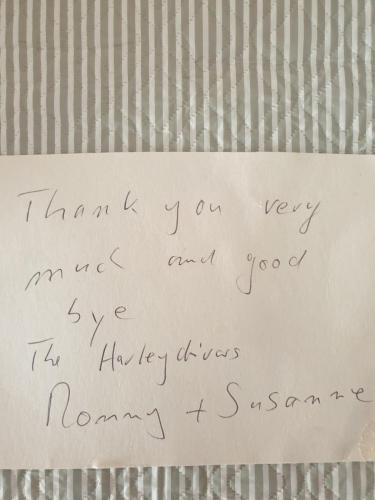 Thank you very
much and good
bye
The Harleydrivers
Rommy + Susanne